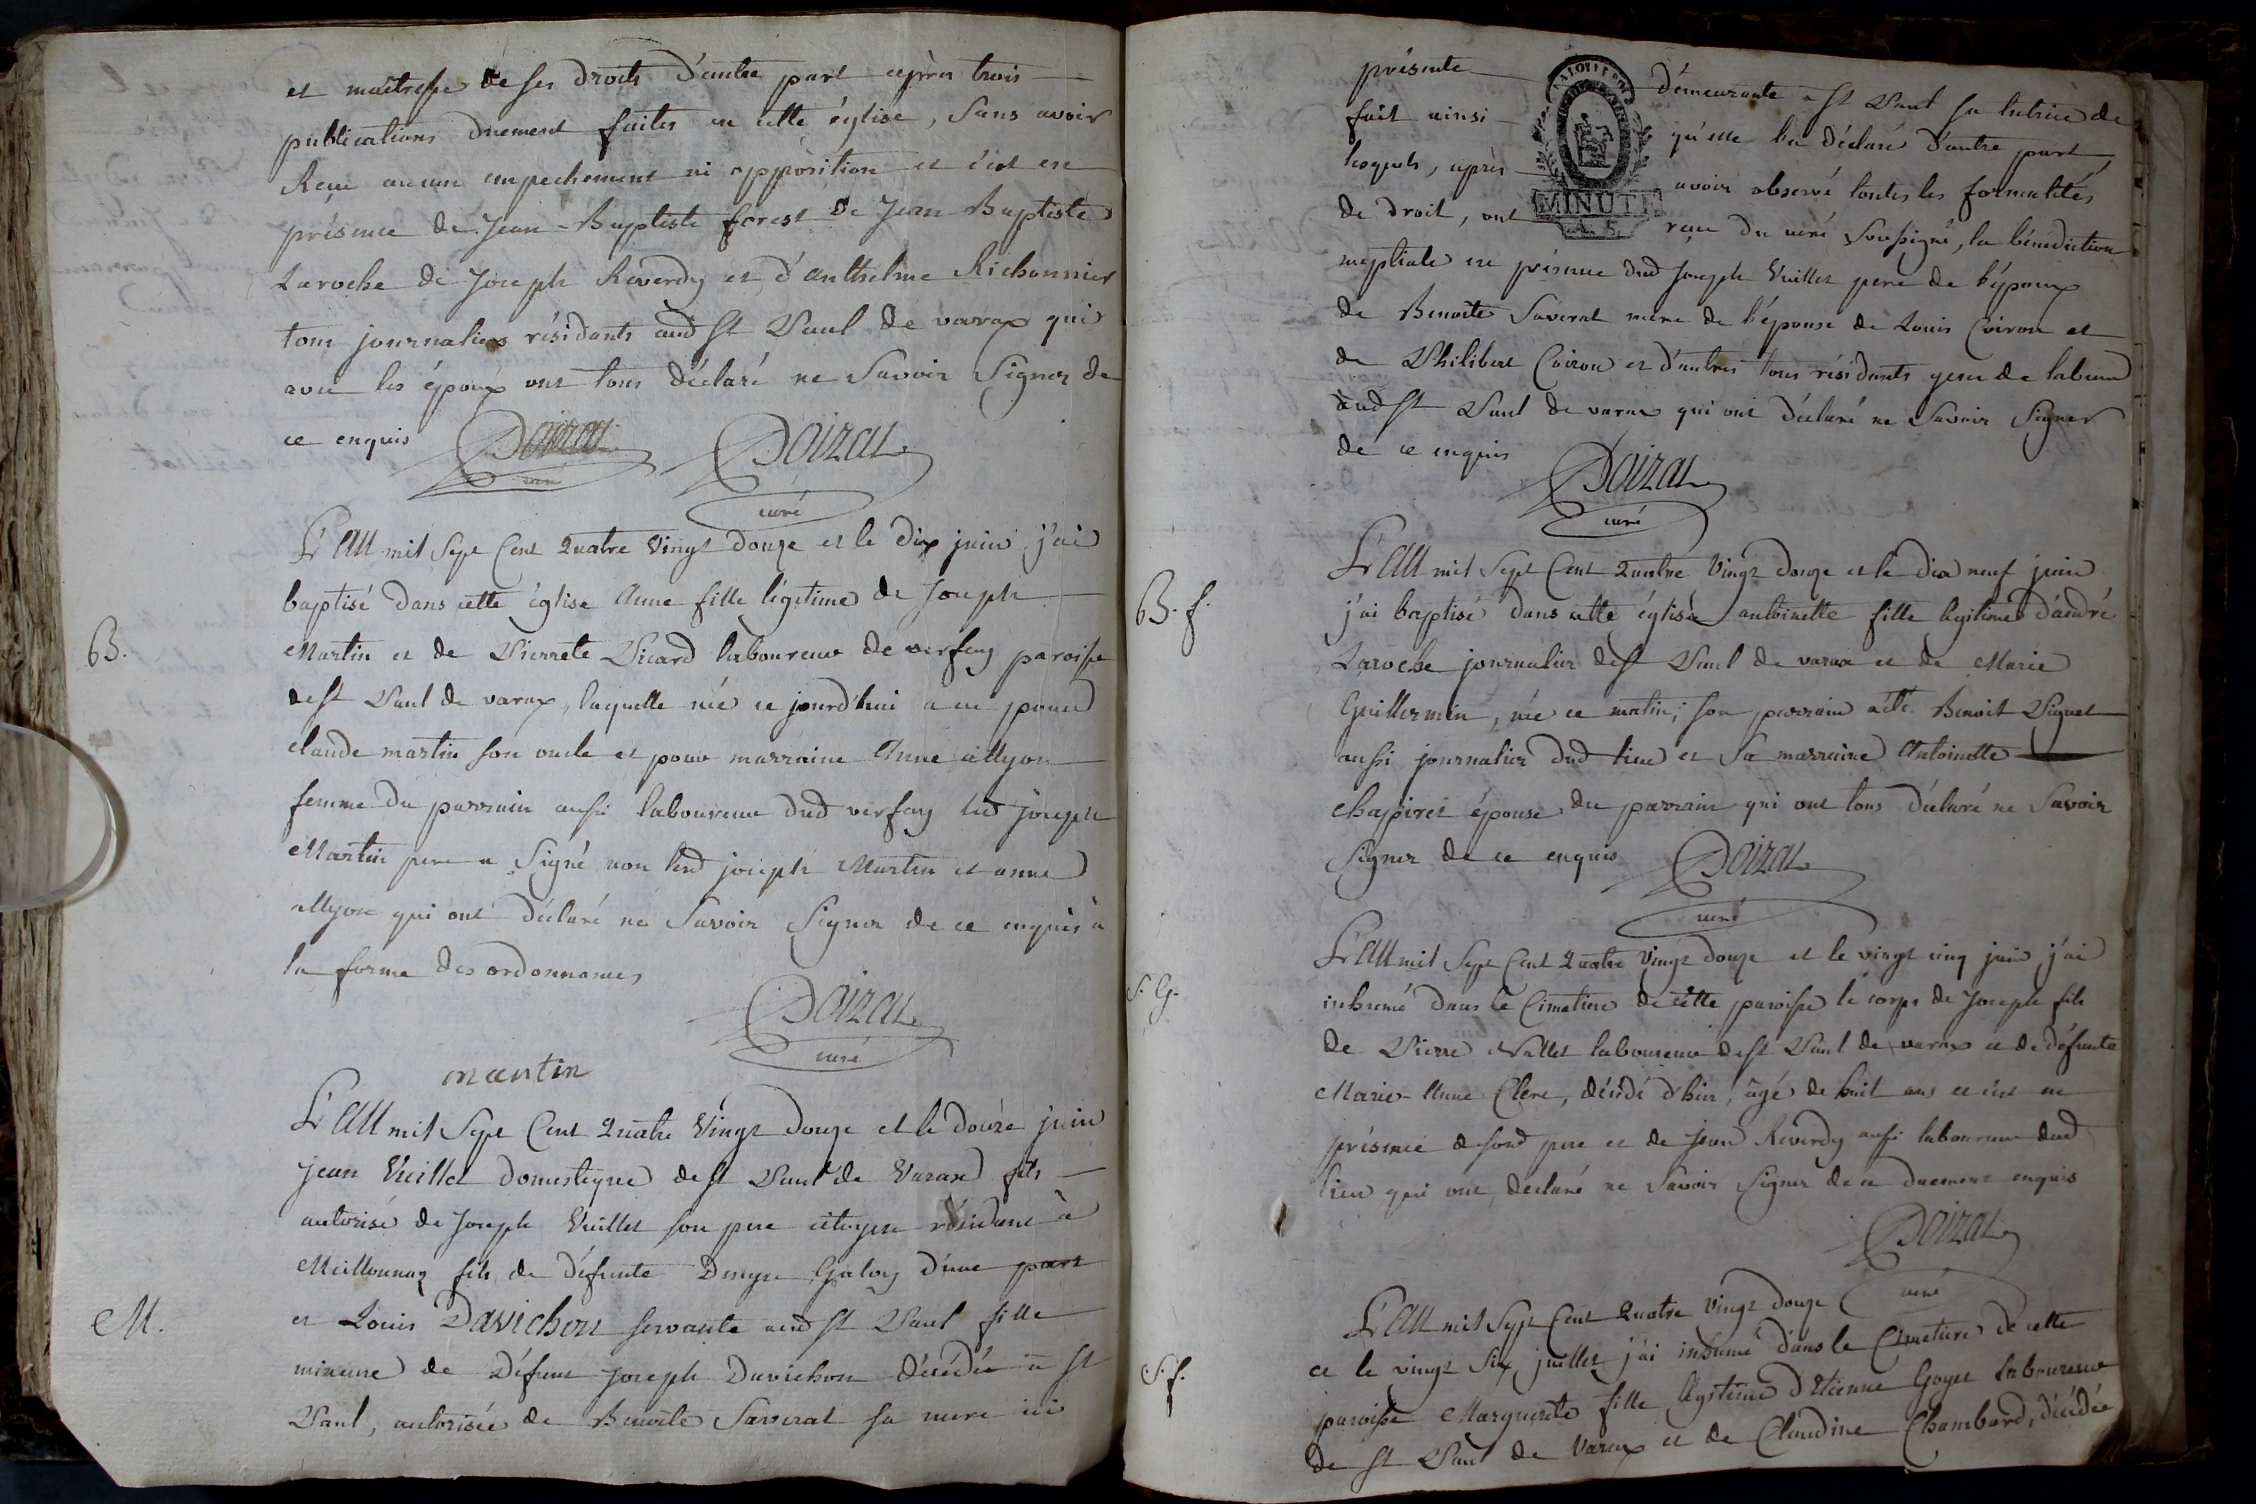 et maitresse de ses droits d'autre part après trois
publications duement faites en cette église, sans avoir
Reçu aucun empechement ni opposition et c'est en
présence de Jean-Baptiste forest de Jean Baptiste
Laroche de Joseph Reverdy et d'Anthelme Richonnier
tous journaliers résidants aud St Paul de varax qui
avec les époux ont tous déclaré ne Savoir Signer de
ce enquis Doizat Doizat
curé curé
L'an mil Sept Cent Quatre Vingt douze et le dix juin j'ai
baptisé dans cette église Anne fille légitime de Joseph
B.
Martin et de Pierrete Picard laboureur de verfay paroisse
de St Paul de varax, laquelle née ce jourd'hui a eu pour
claude martin son oncle et pour marraine Anne
femme du parrain aussi laboureur dud verfay led joseph
Martin pere a Signé non led joseph Martin et anne
qui ont déclaré ne Savoir Signer de ce enquis à
la forme des ordonnances
Doizat
curé
martin
L'an mil Sept Cent Quatre Vingt douze et le douze juin
Jean Vuillet domestique de St Paul de Varax fils
autorisé de Joseph Vuillet son pere citoyen résidant à
Meillonnaz fils de défunte Galoy d'une part
M.
et Louise Davichon servante aud St Paul fille
mineure de défunt Joseph Davichon décédée à St
Paul, autorisée de Benoite Saverat sa mere ici
présente demeurante a St Paul sa tutrice de
fait ainsi qu'elle l'a déclaré d'autre part,
lesquels, après avoir observé toutes les formalités
MINUTE
de droit, ont reçu du curé Soussigné, la bénédiction
nuptiale en présence dud Joseph Vuillet pere de l'époux
de Benoite Saverat mere de l'épouse de Louis Coiron et
de Philibert Coiron et d'autres tous résidants gens de labeur
aud St Paul de varax qui ont déclaré ne Savoir Signer
de ce enquis Doizat
curé
L'an mil Sept Cent Quatre Vingt douze et le dix neuf juin
B. f.
j'ai baptisé dans cette église antoinette fille légitime d'andré
Laroche journalier de St Paul de varax et de Marie
Guillermin, née ce matin; son parrain a été Benoit Piguet
aussi journalier dud lieu et Sa marraine Antoinette
chapiret épouse du parrain qui ont tous déclaré ne Savoir
Signer de ce enquis Doizat
curé
L'an mil Sept Cent Quatre Vingt douze et le vingt cinq juin j'ai
S. G.
inhumé dans le Cimetiere de cette paroisse le corps de Joseph fils
de Pierre Nallet laboureur de St Paul de varax et de défunte
Marie-Anne Clerc, décédé d'hier, âgé de huit ans et c'est en
présence de sond pere et de Jean Reverdy aussi laboureur dud
lieu qui ont declaré ne Savoir Signer de ce duement enquis
Doizat
curé
L'an mil Sept Cent Quatre Vingt douze
S. f.
et le vingt Six juillet j'ai inhumé dans le Cimetiere de cette
paroisse Marguerite fille légitime d'Etienne Goyet laboureur
de St Paul de Varax et de Claudine Chambard, décédée